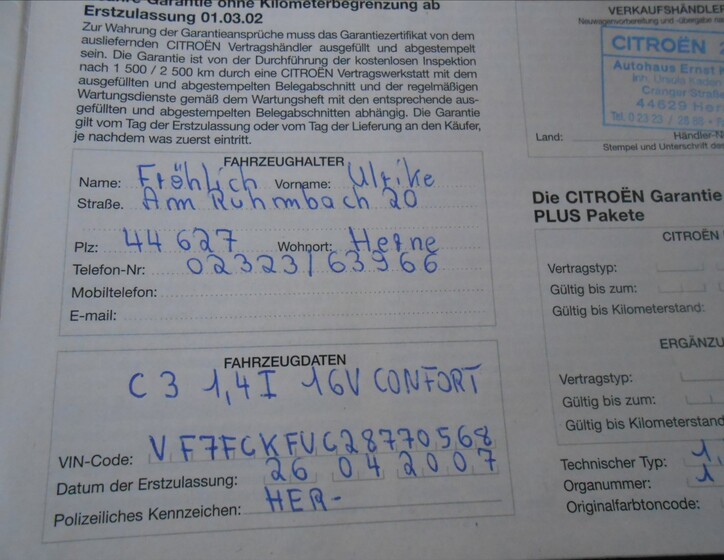 Garantie ohne Kilometerbegrenzung ab
Erstzulassung 01.03.02
Zur Wahrung der Garantieansprüche muss das Garantiezertifikat von dem
ausliefernden CITROËN Vertragshändler ausgefüllt und abgestempelt
sein. Die Garantie ist von der Durchführung der kostenlosen Inspektion
nach 1 500 / 2 500 km durch eine CITROËN Vertragswerkstatt mit dem
ausgefüllten und abgestempelten Belegabschnitt und der regelmäßigen
Wartungsdienste gemäß dem Wartungsheft mit den entsprechende aus-
gefüllten und abgestempelten Belegabschnitten abhängig. Die Garantie
gilt vom Tag der Erstzulassung oder vom Tag der Lieferung an den Käufer,
je nachdem was zuerst eintritt.
FAHRZEUGHALTER
Name: Fröhlich Vorname: Ulrike
Straße. Am Ruhmbach 20
Plz: 44 627 Wohnort: Herne
Telefon-Nr: 02323/63966
Mobiltelefon:
E-mail:
FAHRZEUGDATEN
C3 1,4I 16V CONFORT
VIN-Code: VF7FCKFVC28770568
Datum der Erstzulassung: 26 04 2007
Polizeiliches Kennzeichen: HER-
VERKAUFSHÄNDLER
CITROËN
Autohaus Ernst
Inh. Ursula
Cranger Straße
44629 Her
Tel. 0 23 23 /
Land: Händler-N
Stempel und Unterschrift de
Die CITROËN Garantie
PLUS Pakete
CITROËN
Vertragstyp:
Gültig bis zum:
Gültig bis Kilometerstand:
ERGÄNZU
Vertragstyp:
Gültig bis zum:
Gültig bis Kilometerstand
Technischer Typ: 1,
Organummer: 1
Originalfarbtoncode: